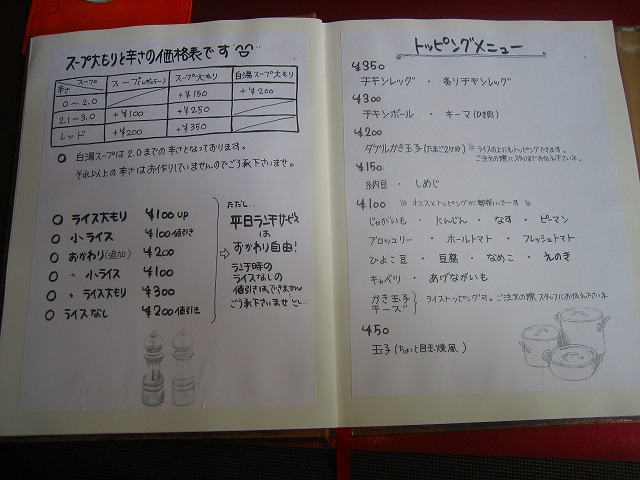 スープ大もりと辛さの価格表です
スープ
辛さ
スープ(レギュラー)
スープ大もり
白湯スープ大もり
0~2.0
+¥150
+¥200
2.1~3.0
+¥100
+¥250
レッド
+¥200
+¥350
○ 白湯スープは2.0までの辛さとなっております。
それ以上の辛さはお作りしていませんのでご了承下さいませ。
○ ライス大もり ¥100 UP
○ 小ライス ¥100値引き
○ おかわり(追加) ¥200
○ 〃 小ライス ¥100
○ 〃 ライス大もり ¥300
○ ライスなし ¥200値引き
ただし…
平日ランチサービス
は
おかわり自由!
ランチ時の
ライスなしの
値引きは、できません
ご了承下さいませ
トッピングメニュー
¥350
チキンレッグ ・ 炙りチキンレッグ
¥300
チキンボール ・ キーマ(ひき肉)
¥200
ダブルかき玉子(たまご2ケ分) ◎ライスの上にもトッピングできます。
ご注文の際スタッフまでお伝え下さいネ
¥150
納豆 ・ しめじ
¥100 ◎ オススメトッピングが勢揃いでーす ◎
じゃがいも ・ にんじん ・ なす ・ ピーマン
ブロッコリー ・ ホールトマト ・ フレッシュトマト
ひよこ豆 ・ 豆腐 ・ なめこ ・ えのき
キャベツ ・ あげながいも
かき玉子
チーズ
ライストッピング可。ご注文の際スタッフにお伝え下さいネ
¥50
玉子(ちょっと目玉焼風)